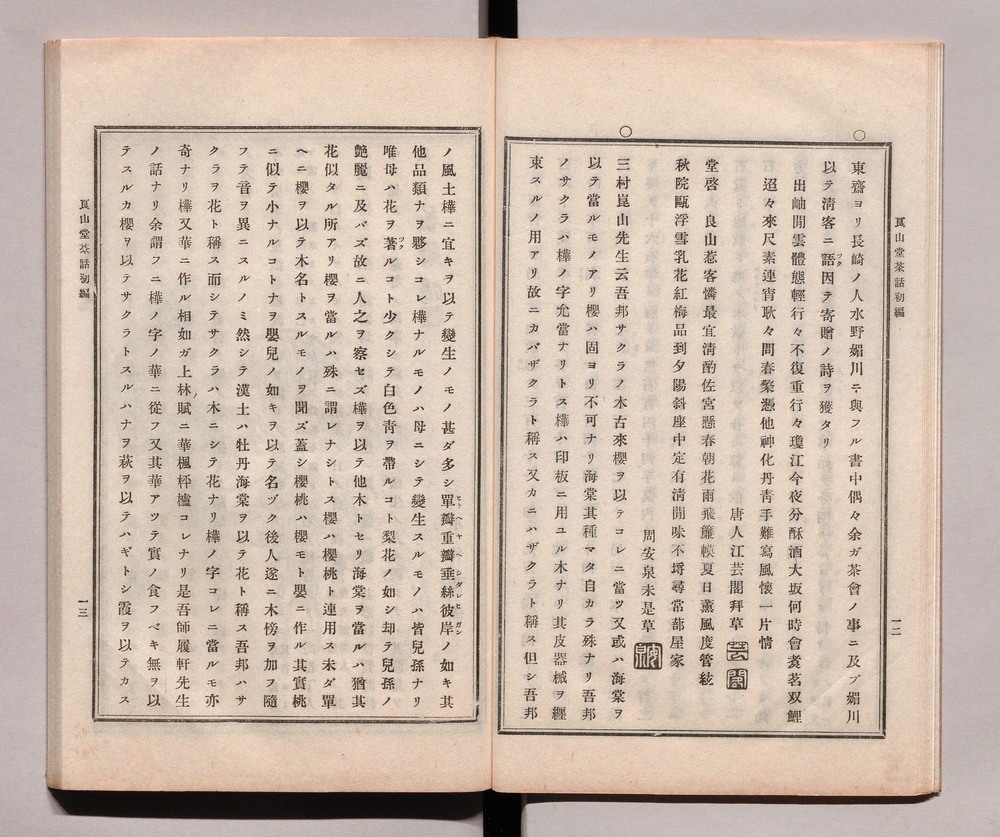 良山堂茶話初編
一二
○
東齋ヨリ長崎ノ人水野媚川ニ與フル書中偶々余ガ茶會ノ事ニ及ブ媚川
以テ清客ニ語因テ寄贈ノ詩ヲ獲タリ
出岫閒雲體態輕行々不復重行々瓊江今夜分酥酒大坂何時會煑茗双鯉
迢々來尺素連宵耿々問春縈憑他神化丹靑手難寫風懷一片情
唐人江芸閣拜草
堂啓良山惹客憐最宜清酌佐宮懸春朝花雨飛簾幙夏日薫風度管絃
秋院甌浮雪乳花紅梅品到夕陽斜座中定有清閒味不埒尋常蔀屋家
周安泉未是草
○
三村崑山先生云吾邦サクラノ木古來櫻ヲ以テコレニ當ツ又或ハ海棠ヲ
以テ當ルモノアリ櫻ハ固ヨリ不可ナリ海棠其種マタ自カラ殊ナリ吾邦
ノサクラハ樺ノ字允當ナリトス樺ハ印板ニ用ユル木ナリ其皮器械ヲ纒
束スルノ用アリ故ニカバザクラト稱ス又カニハザクラト稱ス但シ吾邦
ノ風土樺ニ宜キヲ以テ變生ノモノ甚ダ多シ單瓣重瓣垂絲彼岸ノ如キ其
他品類ナヲ夥シコレ樺ナルモノハ母ニシテ變生スルモノハ皆兒孫ナリ
唯母ハ花ヲ著ルコト少クシテ白色靑ヲ帶ルコト梨花ノ如シ却テ兒孫ノ
艶麗ニ及バズ故ニ人之ヲ察セズ樺ヲ以テ他木トセリ海棠ヲ當ルハ猶其
花似タル所アリ櫻ヲ當ルハ殊ニ謂レナシトス櫻ハ櫻桃ト連用ス未ダ單
ヘニ櫻ヲ以テ木名トスルモノヲ聞ズ蓋シ櫻桃ハ櫻モト嬰ニ作ル其實桃
ニ似テ小ナルコトナヲ嬰兒ノ如キヲ以テ名ヅク後人遂ニ木傍ヲ加フ隨
フテ音ヲ異ニスルノミ然シテ漢土ハ牡丹海棠ヲ以テ花ト稱ス吾邦ハサ
クラヲ花ト稱ス而シテサクラハ木ニシテ花ナリ樺ノ字コレニ當ルモ亦
奇ナリ樺又華ニ作ル相如ガ上林賦ニ華楓枰櫨コレナリ是吾師履軒先生
ノ話ナリ余謂フニ樺ノ字ノ華ニ從フ又其華アツテ實ノ食フベキ無ヲ以
テスルカ櫻ヲ以テサクラトスルハナヲ萩ヲ以テハギトシ霞ヲ以テカス
良山堂茶話初編
一三